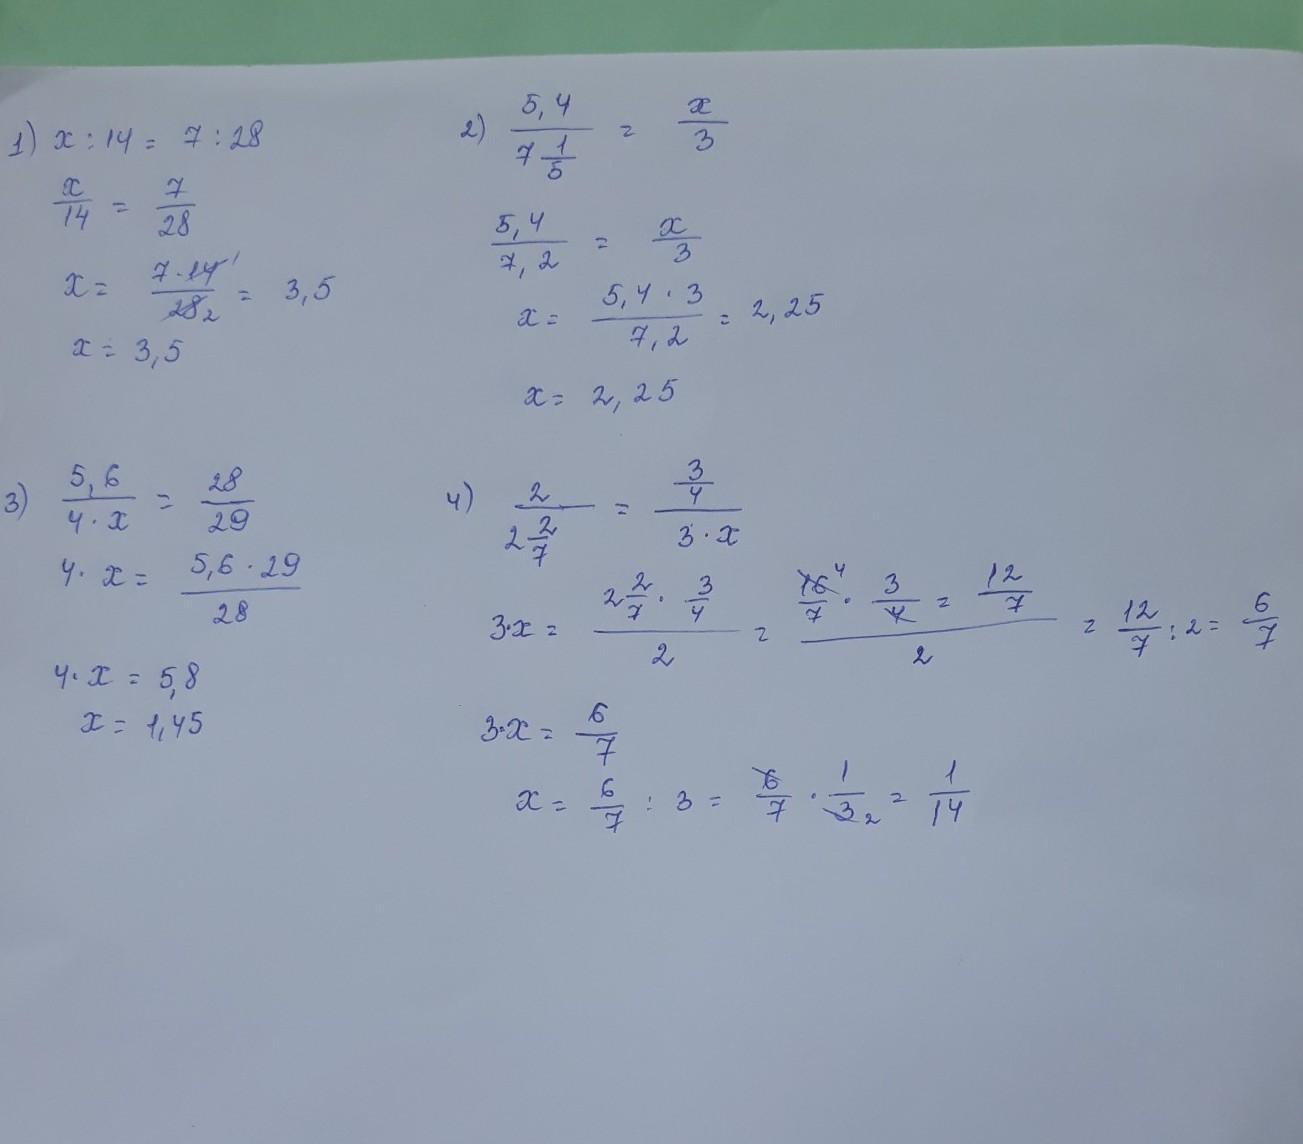 1) x : 14 = 7 : 28
x/14 = 7/28
x = 7·14 1/28 2 = 3,5
x = 3,5
2) 5,4/7 1/5 = x/3
5,4/7,2 = x/3
x = 5,4 · 3/7,2 = 2,25
x = 2,25
3) 5,6/4·x = 28/29
4· x = 5,6 · 29/28
4·x = 5,8
x = 1,45
4) 2/2 2/7 = 3/4/3·x
3·x = 2 2/7 · 3/4/2 = 16 4/7 · 3/4 = 12/7/2 = 12/7 : 2 = 6/7
3·x = 6/7
x = 6/7 : 3 = 6/7 · 1/3 2 = 1/14